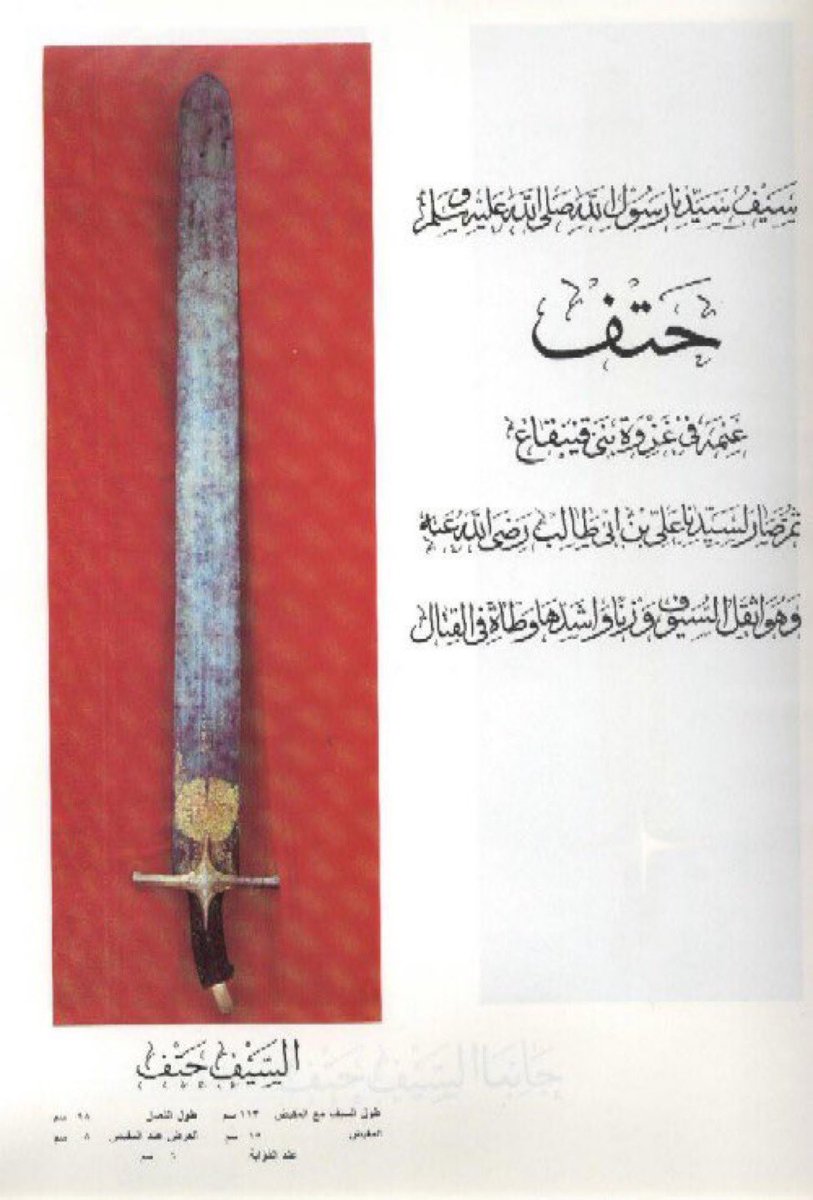 سيف سيدنا رسول الله صلى الله عليه وسلم
حتف
غنمه في غزوة بني قينقاع
ثم صار لسيدنا علي بن ابي طالب رضي الله عنه
وهو اثقل السيوف وزنا واشدها وطاة في القتال
السيف حتف
طول السيف مع المقبض ١١٣ سم طول النصل ٩٨ سم
المقبض ١٥ سم العرض عند المقبض ٨ سم
عند الذؤابة ٦ سم
جانبا السيف حتف